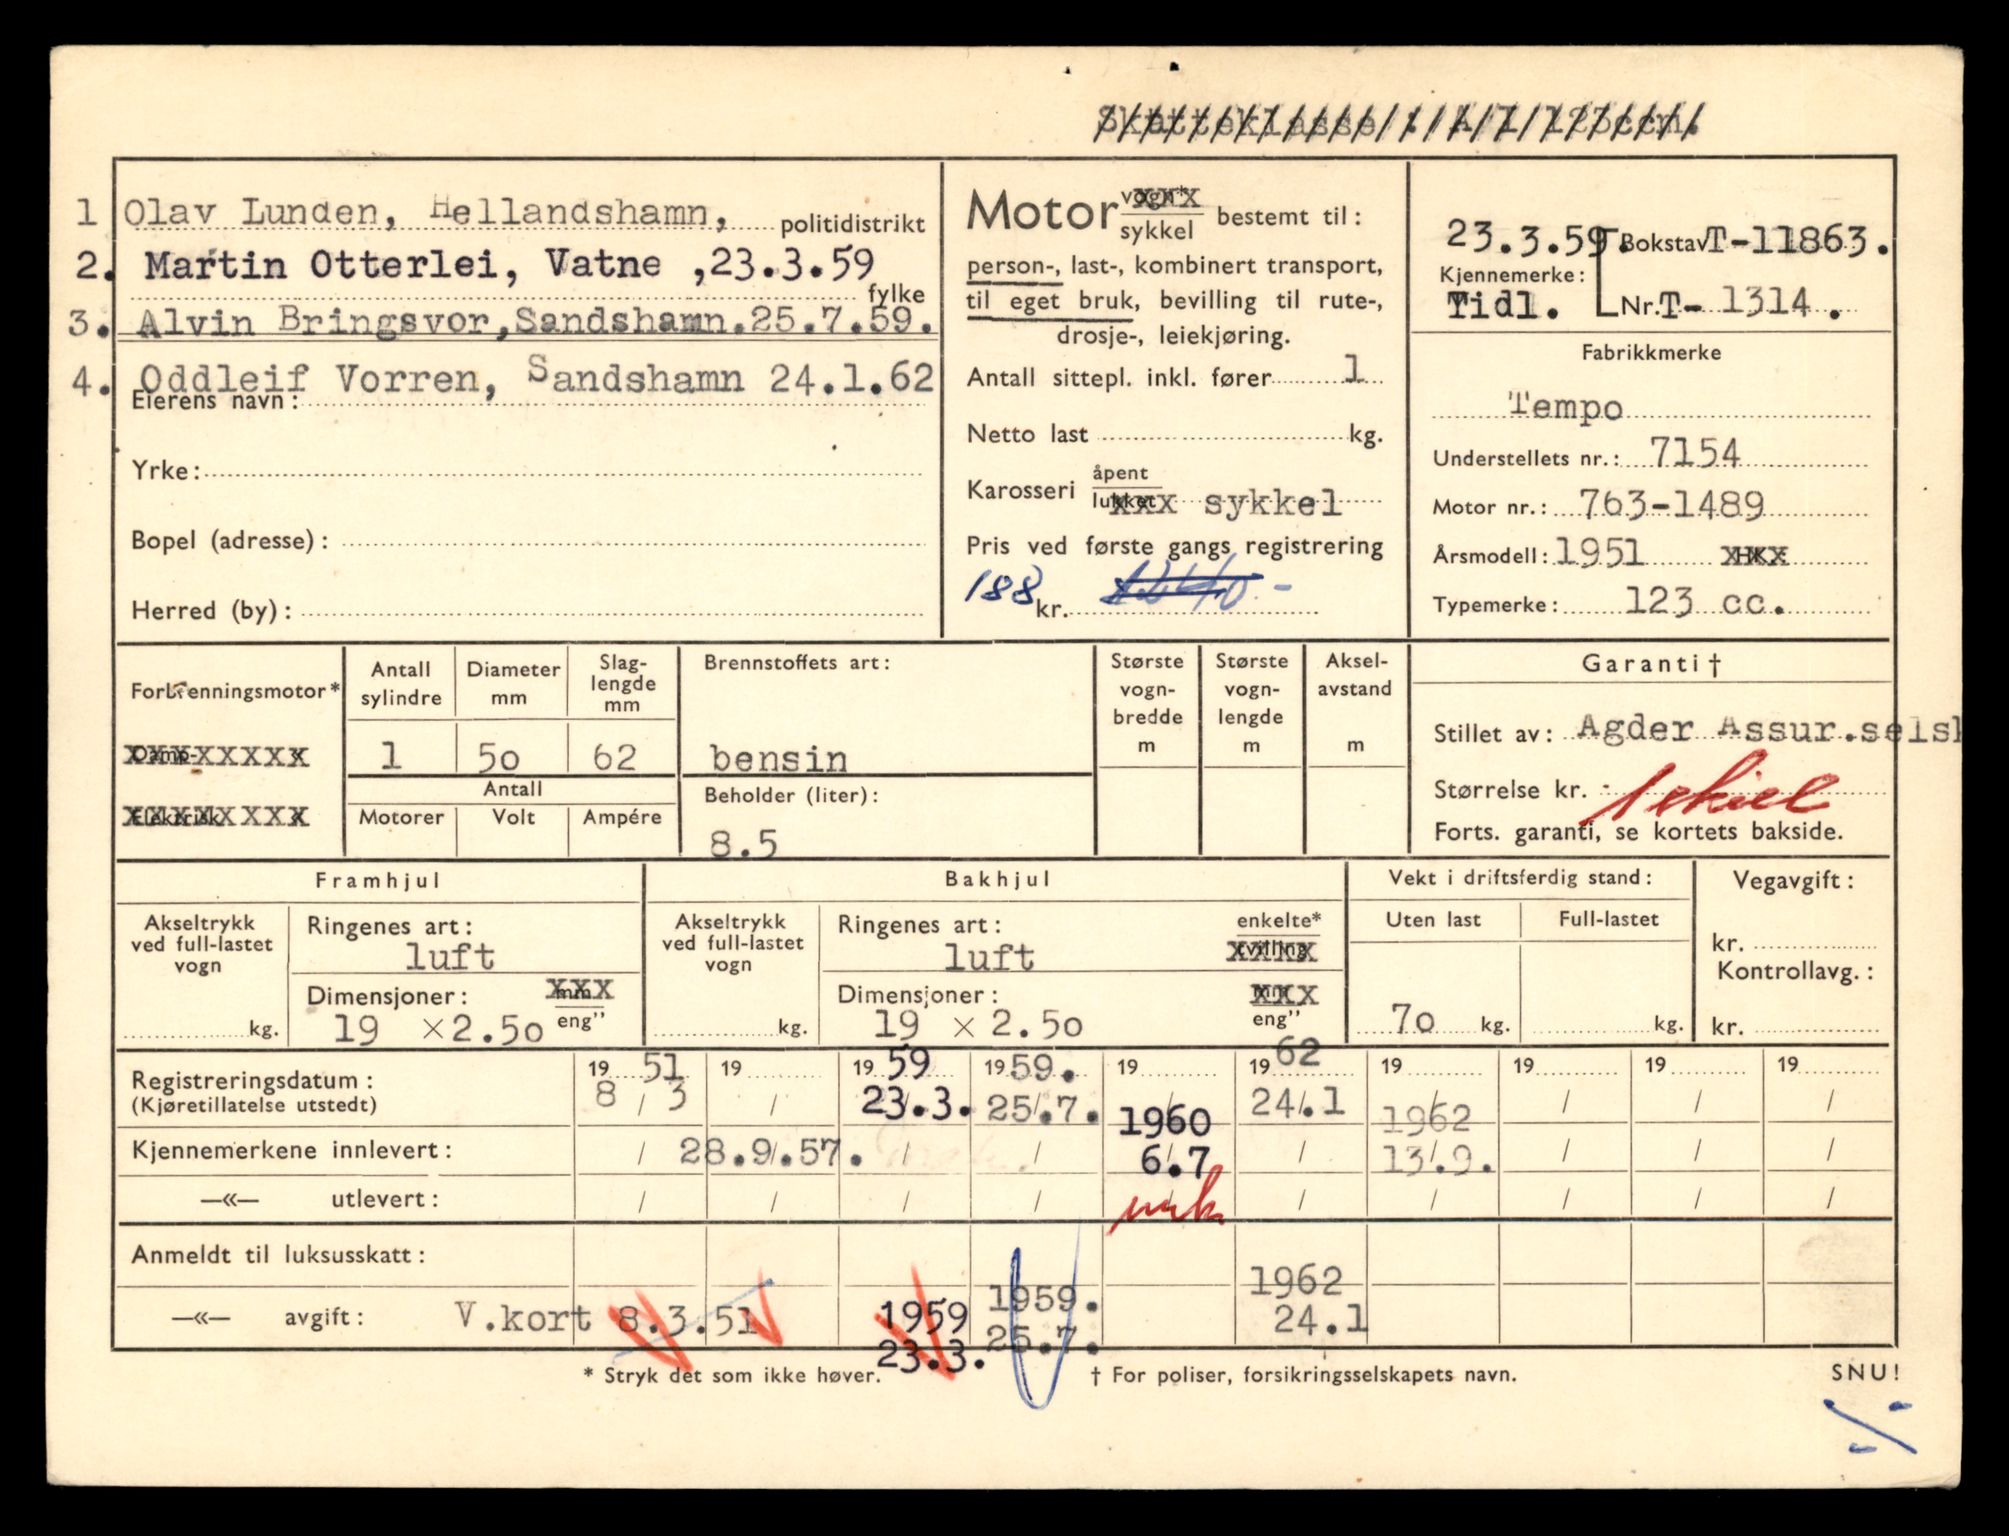 Skatteklasse
1 Olav Lunden, Hellandshamn, politidistrikt
2. Martin Otterlei, Vatne ,23.3.59
fylke
3. Alvin Bringsvor,Sandshamn.25.7.59.
4. Oddleif Vorren, Sandshamn 24.1.62
Eierens navn:
Yrke:
Bopel (adresse):
Herred (by):
Motor vogn* sykkel bestemt til:
person-, last-, kombinert transport,
til eget bruk, bevilling til rute-,
drosje-, leiekjøring.
Antall sittepl. inkl. fører 1
Netto last kg.
Karosseri åpent lukket sykkel
Pris ved første gangs registrering
188 kr. -
23.3.59. Bokstav T-11863.
Kjennemerke:
Tidl. Nr. T- 1314 .
Fabrikkmerke
Tempo
Understellets nr.: 7154
Motor nr.: 763-1489
Årsmodell: 1951 HK
Typemerke: 123 cc.
Forbrenningsmotor*
Damp-
Elektrisk
Antall sylindre
Diameter mm
Slag-lengde mm
1 50 62
Antall
Motorer Volt Ampére
Brennstoffets art:
bensin
Beholder (liter):
8.5
Største vogn-bredde m
Største vogn-lengde m
Aksel-avstand m
Garanti †
Stillet av: Agder Assur.selsk
Størrelse kr.
Forts. garanti, se kortets bakside.
Framhjul
Akseltrykk ved full-lastet vogn
kg.
Ringenes art:
luft
Dimensjoner: mm eng"
19 x 2.50
Bakhjul
Akseltrykk ved full-lastet vogn
kg.
Ringenes art: enkelte* tvilling
luft
Dimensjoner: mm eng"
19 x 2.50
Vekt i driftsferdig stand:
Uten last Full-lastet
70 kg. kg.
Vegavgift:
kr.
Kontrollavg.:
kr.
Registreringsdatum: 19 51 19 19 59 19 59. 19 19 62 19 19 19 19
(Kjøretillatelse utstedt) 8 / 3 / 23.3. 25.7. / 24.1 / / / /
Kjennemerkene innlevert: / 28.9.57. / / 1960 6.7 / 1962 13.9. / / /
—«— utlevert: / / / / / / / / / /
Anmeldt til luksusskatt:
—«— avgift: V.kort 8.3.51 1959 23.3. 1959. 25.7. 1962 24.1
* Stryk det som ikke høver. † For poliser, forsikringsselskapets navn. SNU!